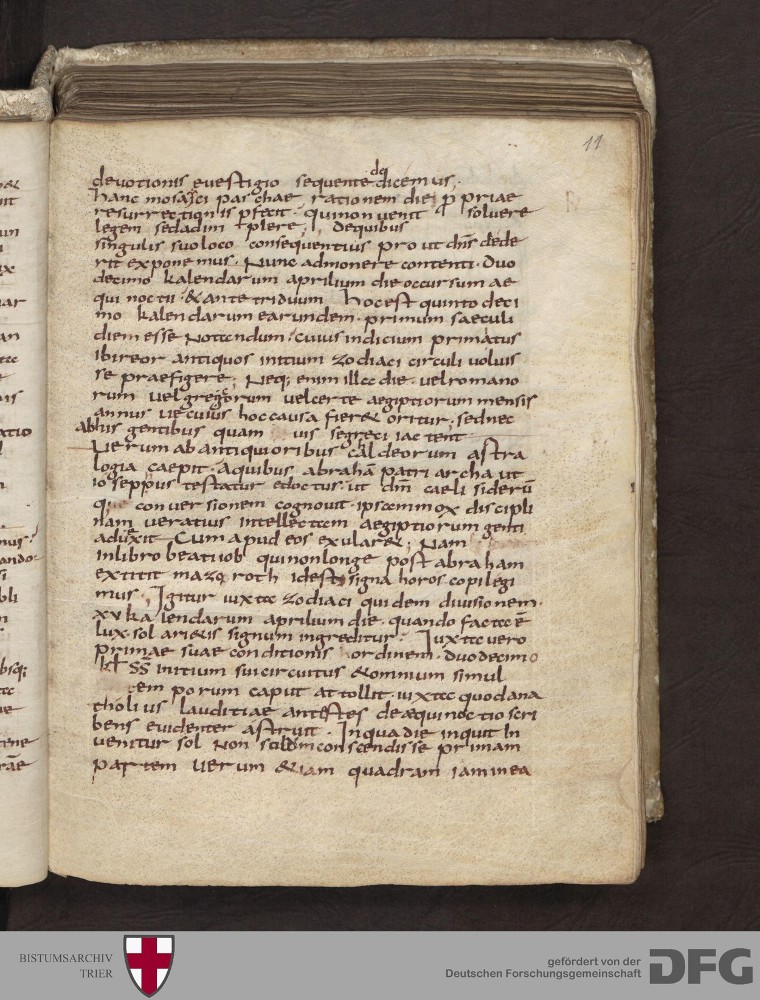 11
dq
devotionis evestigio sequente dicemus.
hanc mosaici paschae rationem die p priae
resurrectionis pfecit. qui non venit solvere
legem sed adimplere; dequibus
singulis suo loco consequentius prout dns dede
rit exponemus. Nunc admonere contenti. duo
decimo kalendarum aprilium die occursum ae
quinoctii. & ante triduum hoc est quinto deci
mo kalendarum earundem. primum saeculi
diem esse Notandum. cuius indicium primatus
ibi reor antiquos initium zodiaci circuli voluis
se praefigere; Neq; enim illa die. vel romano
rum vel grecorum vel certe aegiptiorum mensis
annus ve cuius hoc causa fier& oritur. sed nec
abhis gentibus quam vis se greci iactent
Verum ab antiquioribus caldeorum astra
logia caepit. A quibus abraham patri archa ut
ioseppus testatur edoctus. ut dm caeli siderū
q; conversionem cognovit. ipsam mox discipli
nam veratius intellectam aegiptiorum genti
aduexit Cum apud eos exular&; Nam
in libro beati iob qui non longe post abraham
extitit mazoroth id est signa horoscopi legi
mus. Igitur iuxta zodiaci quidem divisionem.
xv kalendarum aprilium die. quando facta ē
lux. sol ari&is signum ingreditur. Iuxta vero
primae suae conditionis ordinem. duodecimo
klt ss initium sui circuitus & omnium simul
temporum caput attollit. iuxta quod ana
tholius lauditiae antestes de aequinoctio scri
bens evidenter astruit. In qua die inquit In
venitur sol Non solum conscendisse primam
partem verum &iam quadram iam in ea
BISTUMSARCHIV
TRIER
gefördert von der
Deutschen Forschungsgemeinschaft
DFG